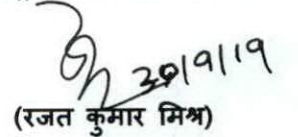 30/9/19
(रजत कुमार मिश्र)